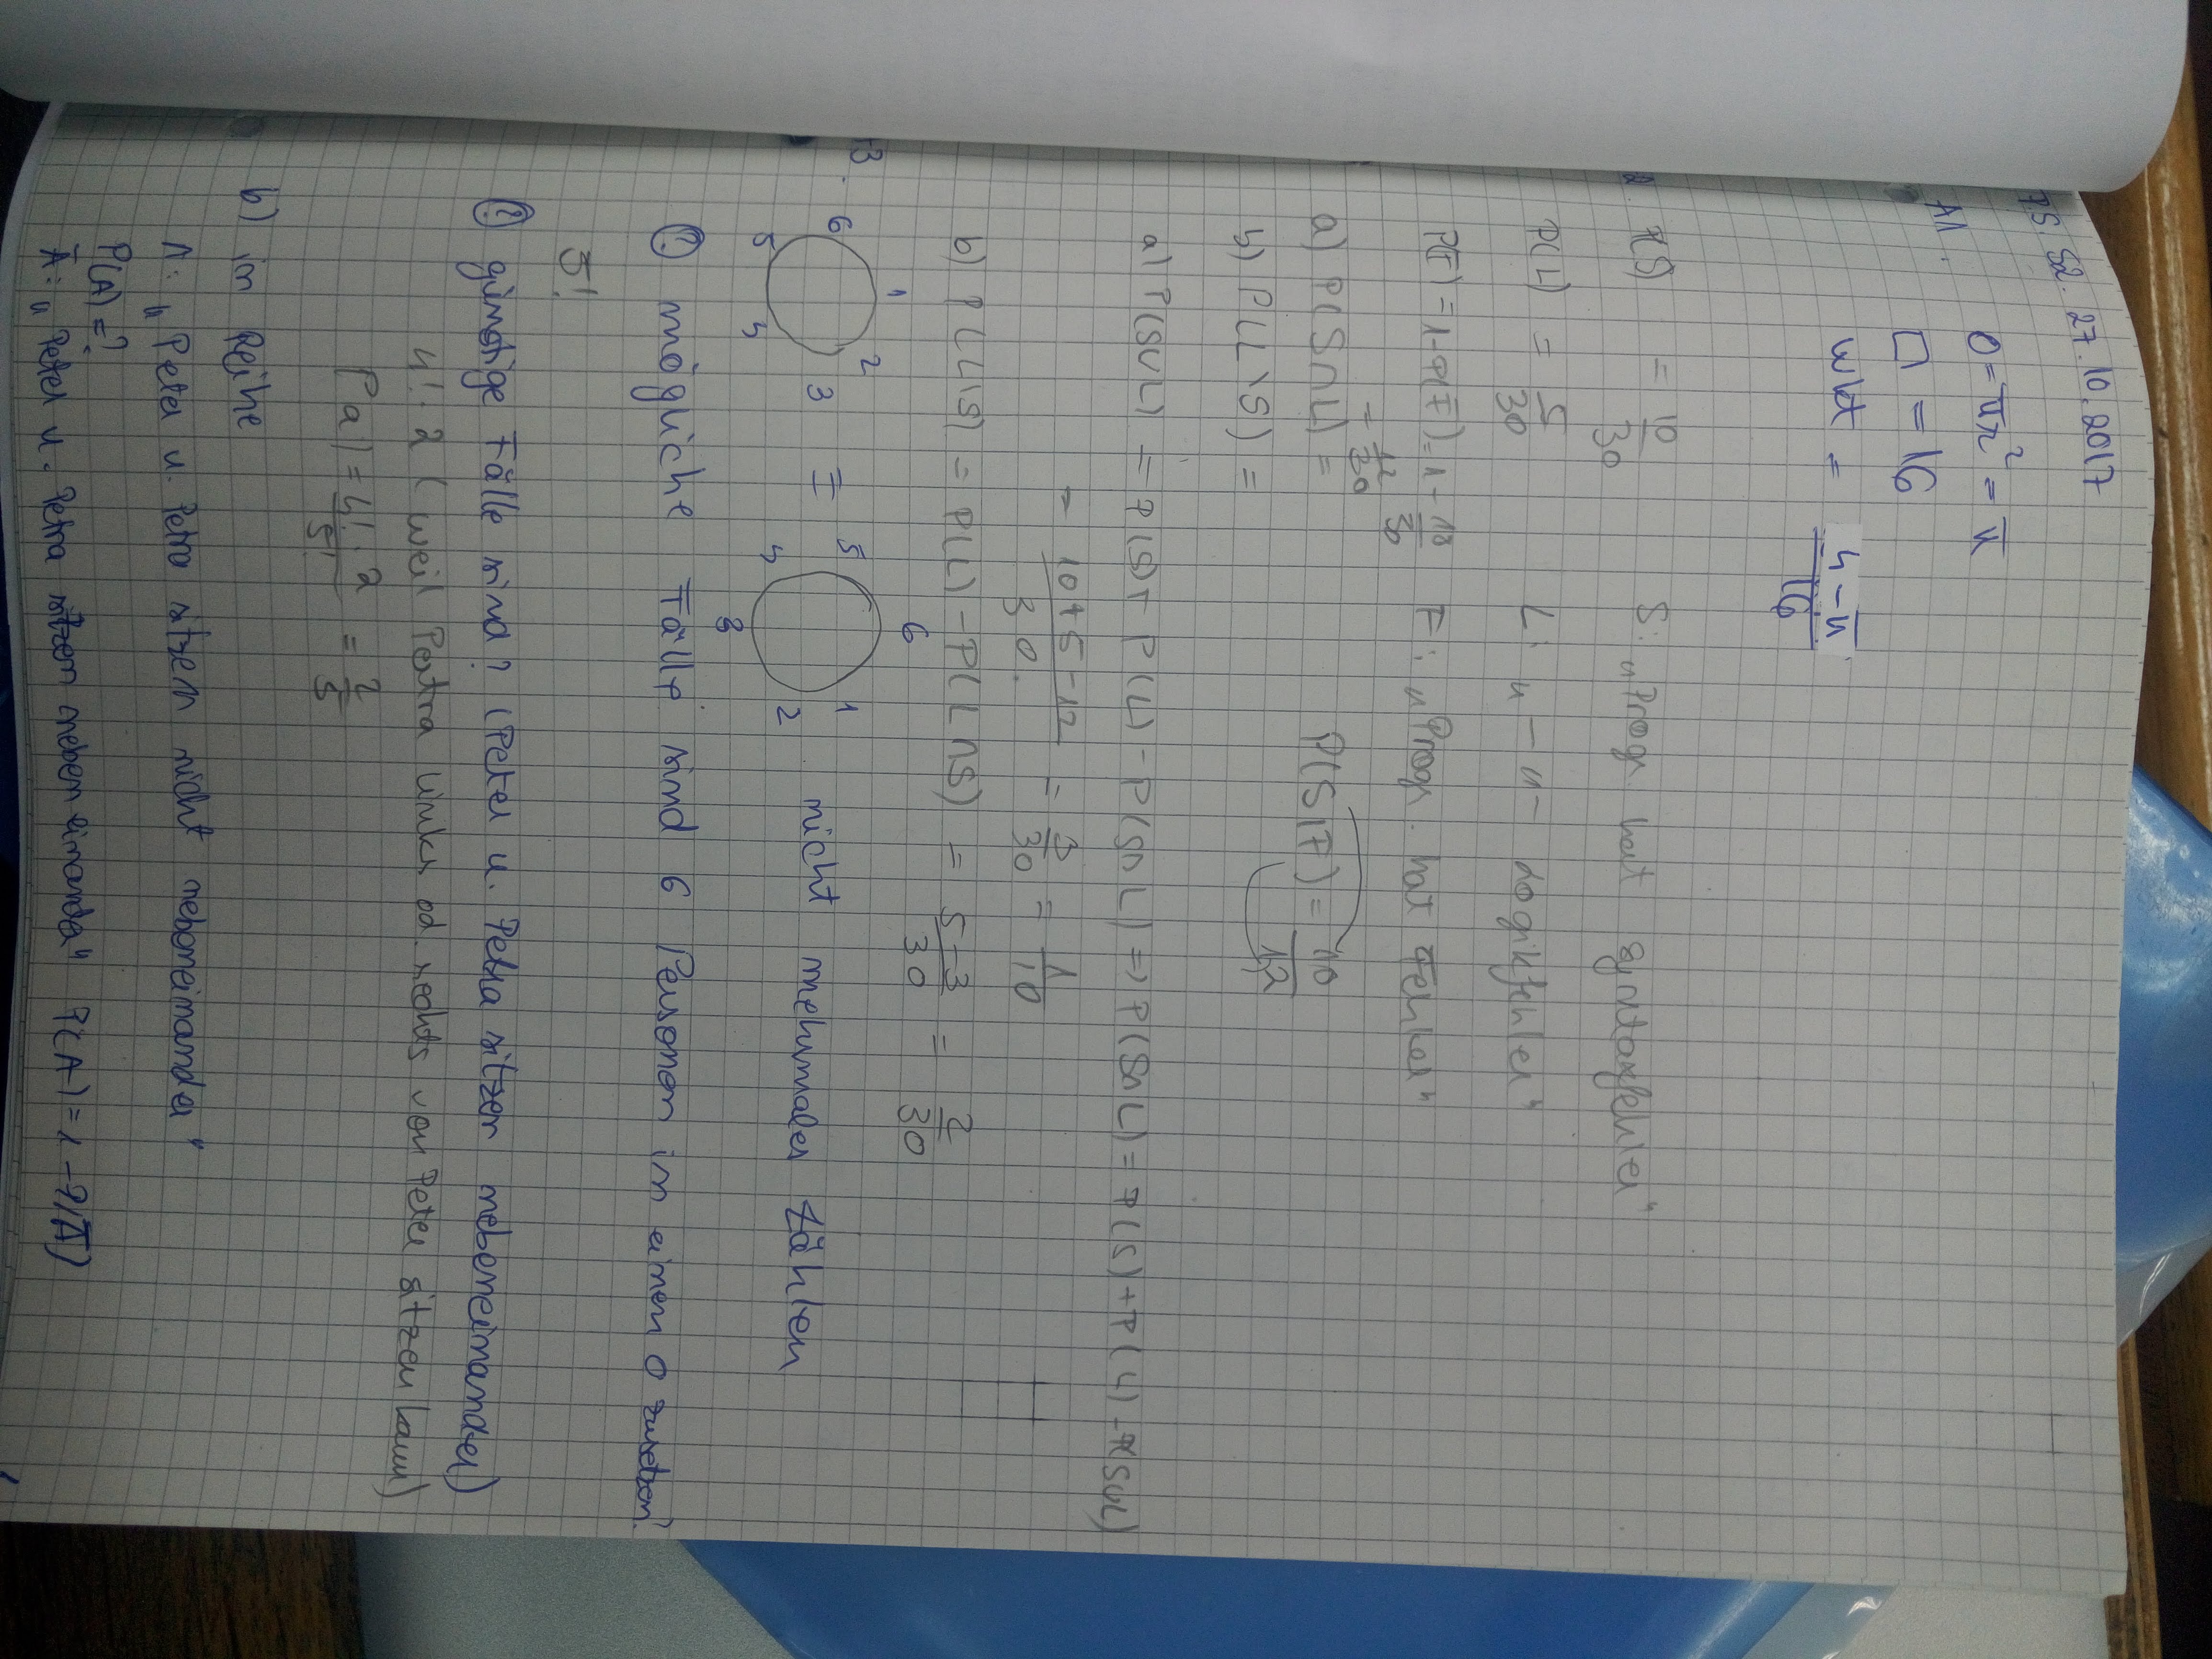 P.S. S2. 27.10.2017
A1. O = πr² = π
□ = 16
wkt = (4-π)/16
2. P(S) = 10/30 S: „Progr. hat Syntaxfehler"
P(L) = 5/30 L: „ -"- Logikfehler"
P(F) = 1-P(F̅) = 1 - 18/30 F: „Progr. hat Fehler"
= 12/30
a) P(S∩L) = P(S|F) = 10/12
b) P(L\S) =
a) P(S∪L) = P(S) + P(L) - P(S∩L) => P(S∩L) = P(S) + P(L) - P(S∪L)
= (10+5-12)/30 = 3/30 = 1/10
b) P(L\S) = P(L) - P(L∩S) = (5-3)/30 = 2/30
A3. 1 2 3 4 5 6 ≡ 6 1 2 3 4 5 nicht mehrmales zählen
? mögliche Fälle sind 6 Personen in einen O zusetzen?
5!
? günstige Fälle sind? (Peter u. Petra sitzen nebeneinander)
4! · 2 (weil Petra links od. rechts von Peter sitzen kann)
P(a) = (4! · 2)/5! = 2/5
b) in Reihe
A: „Peter u. Petra sitzen nicht nebeneinander"
P(A) = ?
A̅: „Peter u. Petra sitzen nebeneinander" P(A) = 1 - P(A̅)